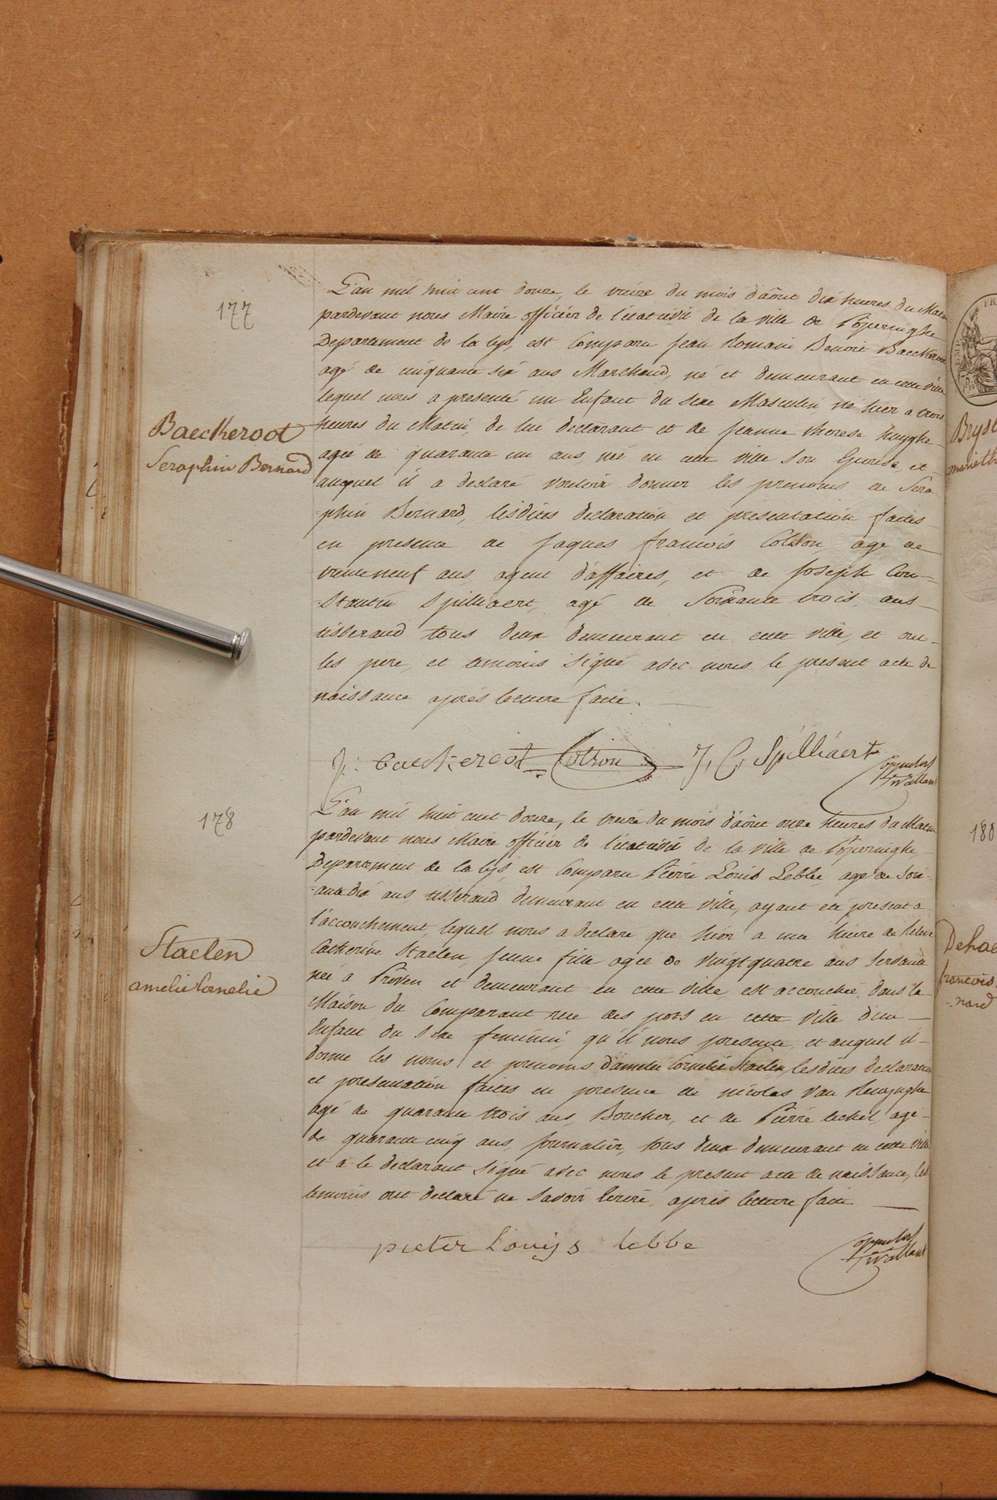 177
Baeckeroot
Seraphin Bernard
L'an mil huit cent douze, le treize du mois d'août dix heures du Matin
pardevant nous Maire officier de l'état civil de la ville de Poperinghe
Departement de la Lys, est Comparu Jean Romain Benoit Baeckeroot
agé de cinquante six ans Marchand, né et demeurant en cette ville
lequel nous a presenté un Enfant du sexe Masculin né hier a trois
heures du Matin, de lui declarant et de Jeanne therese huyghe
agée de quarante un ans née en cette ville son Epouse et
auquel il a declaré vouloir donner les prenoms de Sera
-phin Bernard, lesdites declaration et presentation faites
en presence de Jaques francois Colson age de
vingtneuf ans agent d'affaires, et de Joseph Con-
-stantin Spilliaert, agé de Soixante trois ans
tisserand tous deux demeurant en cette ville, et ont
les pere et temoins signé avec nous le present acte de
naissance après lecture faite.
J: baeckeroot Colson J, C, Spilliaert
178
Staelen
amelie Cornelie
L'an mil huit cent douze, le treize du mois d'août onze heures du Matin
pardevant nous Maire officier de l'état civil de la ville de Poperinghe
Departement de la Lys est Comparu Pierre Louis Lebbe agé de Soix-
ans tisserand demeurant en cette ville, ayant été present a
l'accouchement lequel nous a declaré que hier a une heure de
Catherine Staelen jeune fille agée de vingt quatre ans Servante
née a Proven et demeurant en cette ville est accouchée dans la
Maison du Comparant rue des pots en cette ville d'un
Enfant du sexe feminin qu'il nous presente, et auquel il
donne les noms et prenoms d'amelie Cornelie Staelen lesdites declaration
et presentation faites en presence de nicolas Van
agé de quarante trois ans, Boucher, et de Pierre agé
de quarante cinq ans journalier, tous deux demeurant en cette ville
et a le declarant signé avec nous le present acte de naissance, les
temoins ont declaré ne savoir ecrire, après lecture faite
pieter Louijs lebbe
188